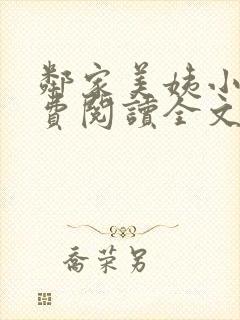 鄰家美姨小
費閱讀全文
喬荣另